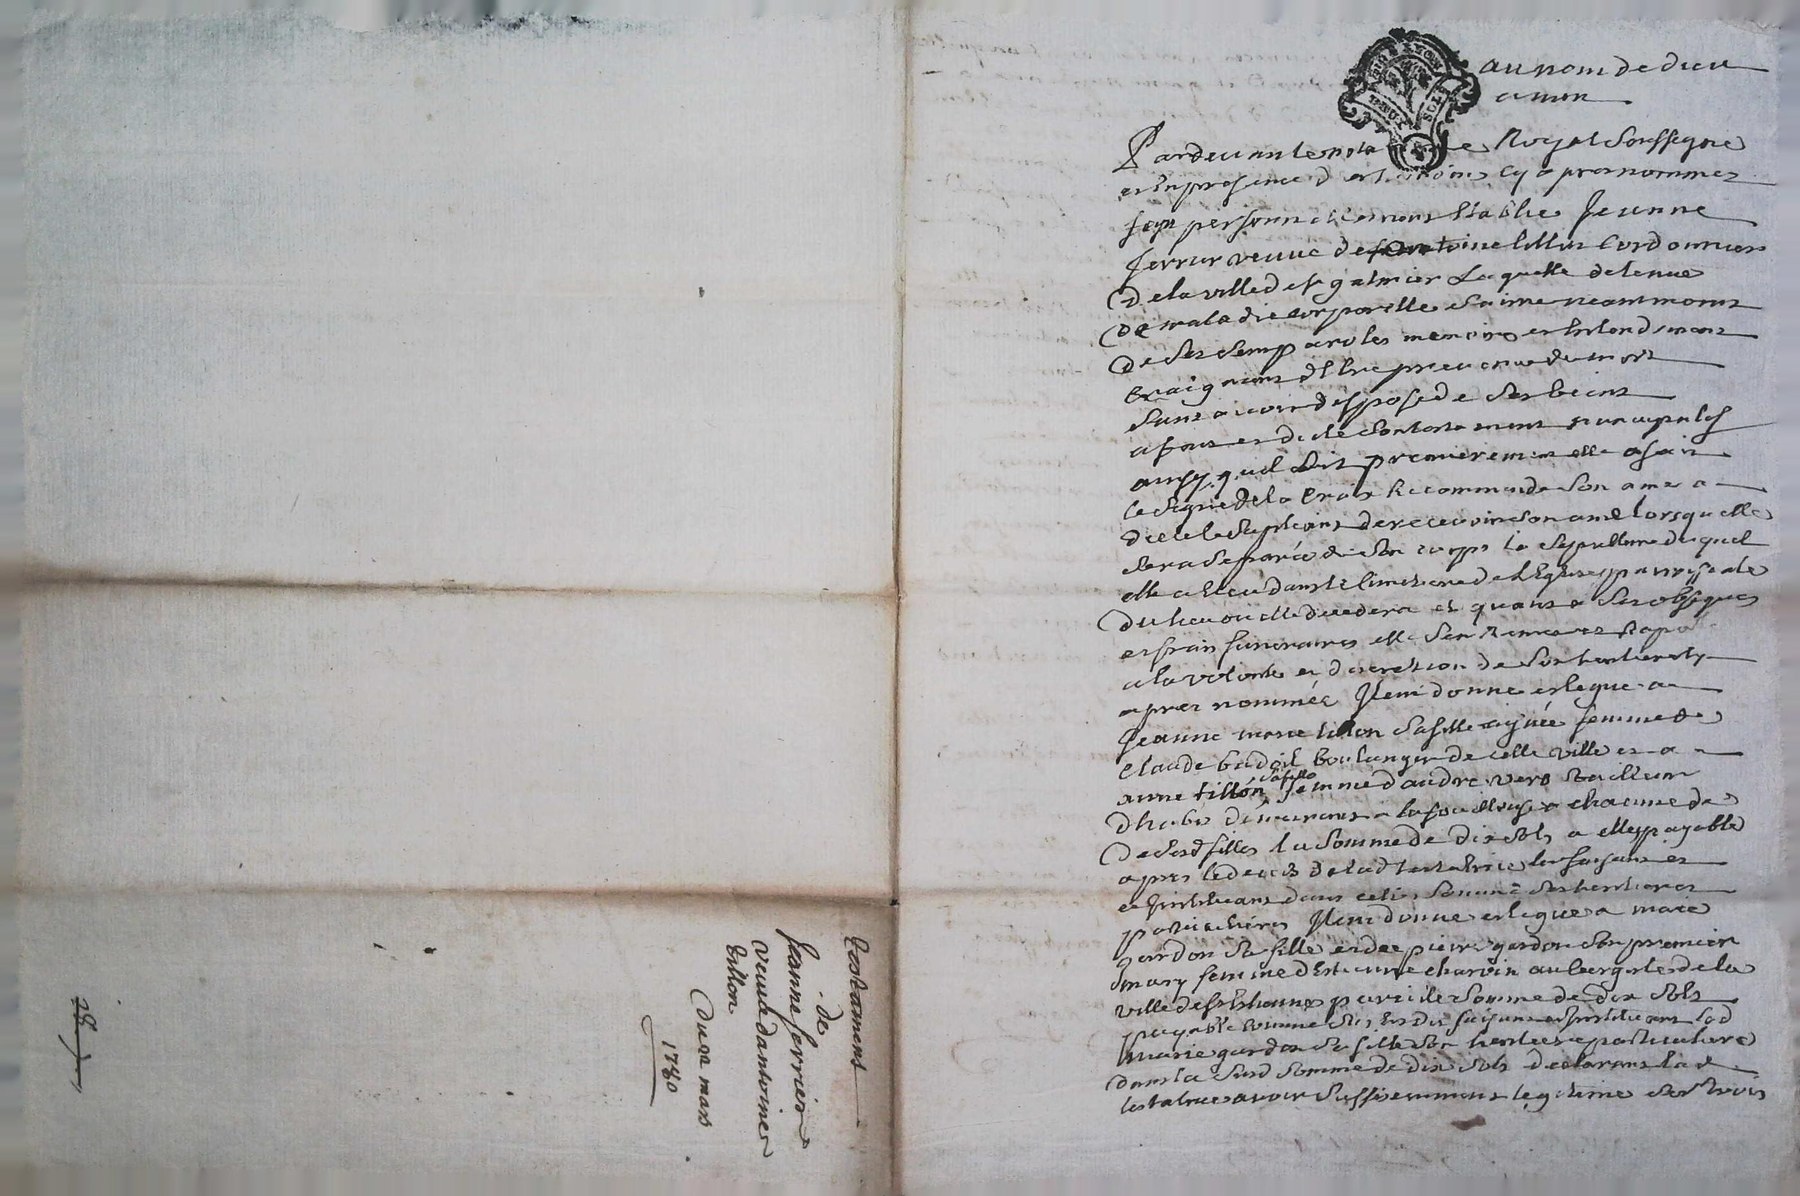 au nom de dieu
amen
Pardevant le nota Royal soussigne
et en presence d es cy apres nommez
fut personnellement establie Jeanne
ferrier veuve de antoine tillon cordonnier
de la ville de st galmier laquelle detenue
de maladie corporelle saine neantmoins
de ses sens parolles memoire et entendement
craignant d'estre prevenue de mort
sans avoir disposé de ses biens
a fait et dicté son testament nuncupatif
ainsy quil suit premierement elle a fait
le signe de la croix recommande son ame a
dieu le supliant de recevoir son ame lorsquelle
sera separée de son corps la sepulture duquel
elle a eleu dans le cimetiere de l'Eglise parroissiale
du lieu ou elle decedera et quant a ses obseques
et frais funeraires elle s'en remet et raporte
a la volonte et discretion de son heritier cy
apres nommée Item donne et legue a
Jeanne marie tillon sa fille aynée femme de
Claude badoil boulanger de cette ville et a
anne tillon sa fille femme d'andre verd tailleur
d'habit demeurant a la fouillouse a chacune de
de sesd filles la somme de dix sols a elles payable
apres le deces de lad testatrice les faisant et
et instituant dans cette somme ses heritieres
particulieres Item donne et legue a marie
gardon sa fille et de pierre gardon son premier
mary femme d'Estienne charvin aubergiste de la
ville de st Estienne pareille somme de dix sols
payable comme dessus faisant et instituant lad
marie gardon sa fille son heritiere particuliere
dans la susd somme de dix sols declarant lad
testatrice avoir suffisemment legitimé ses trois
Testament
de
Jeanne ferrier
veuve d'antoine
tillon
Du xe mars
1780
28